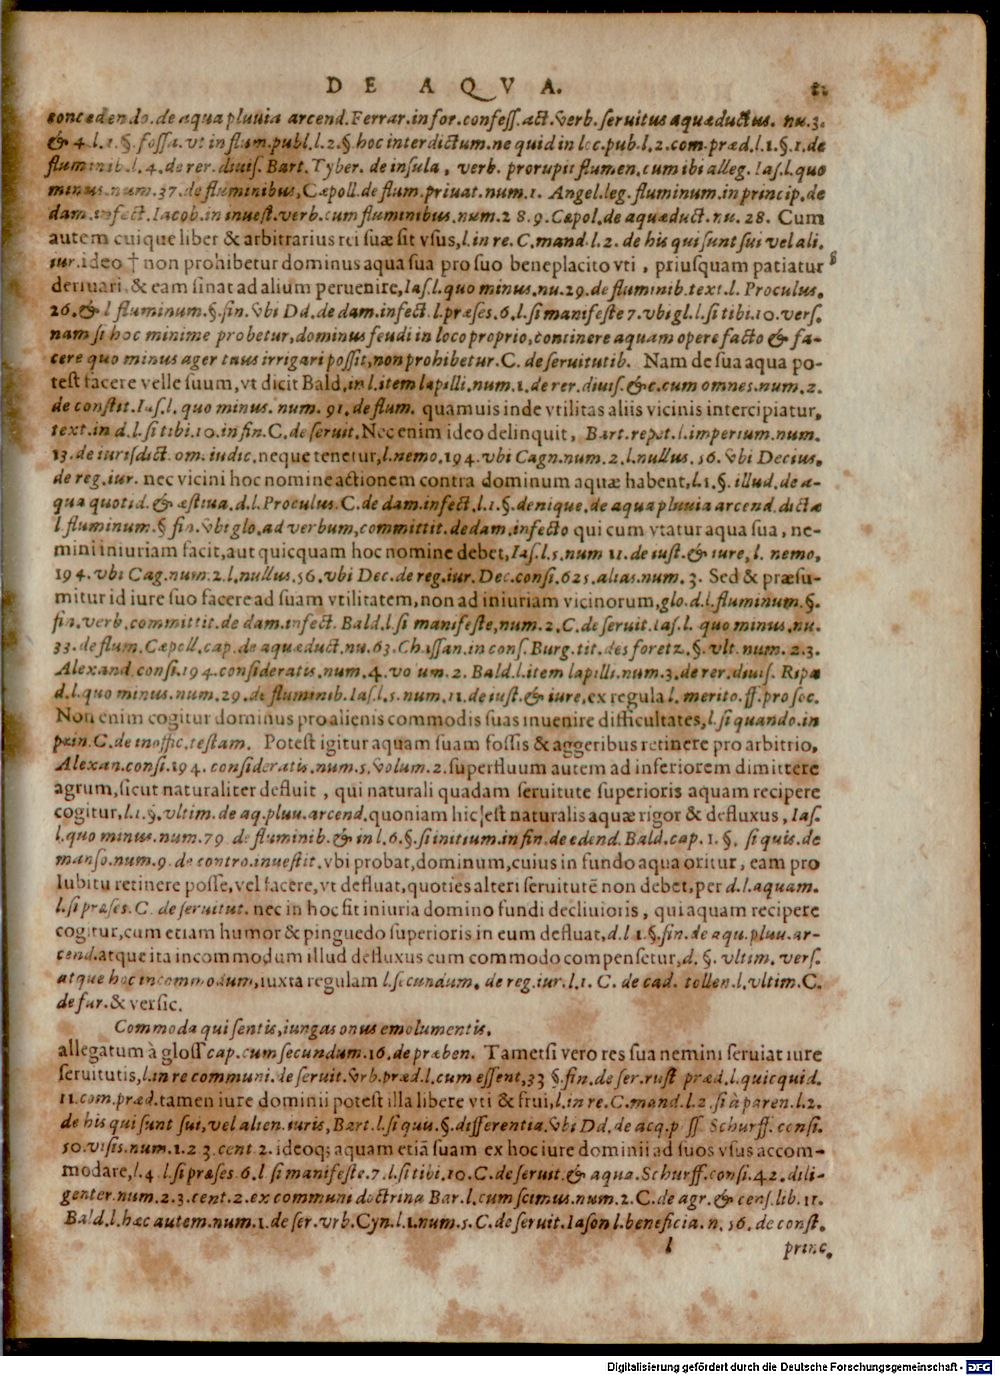 DE AQVA. 81
concedendo. de aqua pluuia arcend. Ferrar. in for. confess. act. verb. seruitus aquæductus. nu. 3.
& 4. l. 1. §. fossa. vt in flum. publ. l. 2. §. hoc interdictum. ne quid in loc. pub. l. 2. com. præd. l. 1. §. 1. de
fluminib. l. 4. de rer. diuis. Bart. Tyber. de insula, verb. prorupit flumen, cum ibi alleg. Ias. l. quo
minus. num. 37. de fluminibus, Cæpoll. de flum. priuat. num. 1. Angel. leg. fluminum. in princip. de
dam. infect. Iacob. in inuest. verb. cum fluminibus. num. 28. 9. Cæpol. de aquæduct. nu. 28. Cum
autem cuique liber & arbitrarius rei suæ sit vsus, l. in re. C. mand. l. 2. de his qui sunt sui vel ali.
iur. ideo † non prohibetur dominus aqua sua pro suo beneplacito vti, priusquam patiatur 8
deriuari, & eam sinat ad alium peruenire, Ias. l. quo minus. nu. 29. de fluminib. text. l. Proculus.
26. & l fluminum. §. fin. vbi Dd. de dam. infect. l. præses. 6. l. si manifeste 7. vbi gl. l. si tibi. 10. vers.
nam si hoc minime probetur, dominus feudi in loco proprio, continere aquam opere facto & fa-
cere quo minus ager tuus irrigari possit, non prohibetur. C. de seruitutib. Nam de sua aqua po-
test facere velle suum, vt dicit Bald, in l. item lapilli. num. 1. de rer. diuis. & c. cum omnes. num. 2.
de constit. Ias. l. quo minus. num. 91. de flum. quamuis inde vtilitas aliis vicinis intercipiatur,
text. in d. l. si tibi. 10. in fin. C. de seruit. Nec enim ideo delinquit, Bart. repet. l. imperium. num.
13. de iurisdict. om. iudic. neque tenetur, l. nemo. 194. vbi Cagn. num. 2. l. nullus. 56. vbi Decius.
de reg. iur. nec vicini hoc nomine actionem contra dominum aquæ habent, l. 1. §. illud. de a-
qua quotid. & æstiua. d. l. Proculus. C. de dam. infect. l. 1. §. denique. de aqua pluuia arcend. dictæ
l fluminum. § fin. vbi glo. ad verbum, committit. de dam. infecto qui cum vtatur aqua sua, ne-
mini iniuriam facit, aut quicquam hoc nomine debet, Ias. l. 5. num 11. de iust. & iure, l. nemo,
194. vbi Cag. num. 2. l. nullus. 56. vbi Dec. de reg. iur. Dec. consi. 625. alias. num. 3. Sed & præsu-
mitur id iure suo facere ad suam vtilitatem, non ad iniuriam vicinorum, glo. d. l. fluminum. §.
fin. verb. committit. de dam. infect. Bald. l. si manifeste, num. 2. C. de seruit. Ias. l. quo minus. nu.
33. de flum. Cæpoll. cap. de aquæduct. nu. 63. Chassan. in cons. Burg. tit. des foretz. §. vlt. num. 2. 3.
Alexand. consi. 194. consideratis. num. 4. vo um. 2. Bald. l. item lapilli. num. 3. de rer. diuis. Ripæ
d. l. quo minus. num. 29. de fluminib. Ias. l. 5. num. 11. de iust. & iure, ex regula l. merito. ff. pro soc.
Non enim cogitur dominus pro alienis commodis suas inuenire difficultates, l. si quando. in
prin. C. de inoffic. testam. Potest igitur aquam suam fossis & aggeribus retinere pro arbitrio,
Alexan. consi. 194. consideratis. num. 5. volum. 2. superfluum autem ad inferiorem dimittere
agrum, sicut naturaliter defluit, qui naturali quadam seruitute superioris aquam recipere
cogitur, l. 1. §. vltim. de aq. pluu. arcend. quoniam hic est naturalis aquæ rigor & defluxus, Ias.
l. quo minus. num. 79 de fluminib. & in l. 6. §. si initium. in fin. de edend. Bald. cap. 1. §. si quis. de
manso. num. 9. de contro. inuestit. vbi probat, dominum, cuius in fundo aqua oritur, eam pro
lubitu retinere posse, vel facere, vt defluat, quoties alteri seruitutē non debet, per d. l. aquam.
l. si præses. C. de seruitut. nec in hoc fit iniuria domino fundi decliuioris, qui aquam recipere
cogitur, cum etiam humor & pinguedo superioris in eum defluat, d. l 1. §. fin. de aqu. pluu. ar-
cend. atque ita incommodum illud defluxus cum commodo compensetur, d. §. vltim. vers.
atque hoc incommodum, iuxta regulam l. secundum. de reg. iur. l. 1. C. de cad. tollen. l. vltim. C.
de fur. & versic.
Commoda qui sentis, iungas onus emolumentis.
allegatum à gloss cap. cum secundum. 16. de præben. Tametsi vero res sua nemini seruiat iure
seruitutis, l. in re communi. de seruit. vrb. præd. l. cum essent, 33 §. fin. de ser. rust præd. l. quicquid.
11. com. præd. tamen iure dominii potest illa libere vti & frui, l. in re. C. mand. l. 2. si à paren. l. 2.
de his qui sunt sui, vel alien. iuris, Bart. l. si quis. §. differentia. vbi Dd. de acq. p ss Schurff. consi.
50. visis. num. 1. 2 3. cent 2. ideoq; aquam etiā suam ex hoc iure dominii ad suos vsus accom-
modare, l. 4 l. si præses. 6. l si manifeste. 7. l. si tibi. 10. C. de seruit. & aqua. Schurff. consi. 42. dili-
genter. num. 2. 3. cent. 2. ex communi doctrina Bar. l. cum scimus. num. 2. C. de agr. & cens. lib. 11.
Bald. l. hæc autem. num. 1. de ser. vrb. Cyn. l. 1. num. 5. C. de seruit. Iason l. beneficia. n. 56. de const.
l princ.
Digitalisierung gefördert durch die Deutsche Forschungsgemeinschaft - DFG